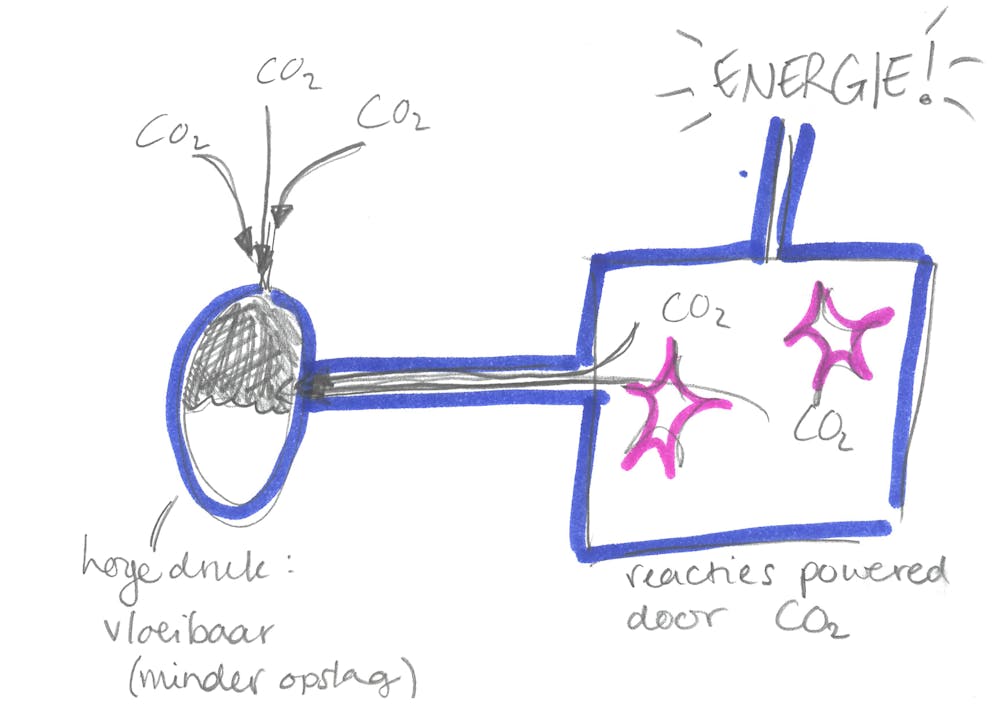 CO2
CO2
CO2
ENERGIE!
CO2
CO2
hoge druk:
vloeibaar
(minder opslag)
reacties powered
door CO2